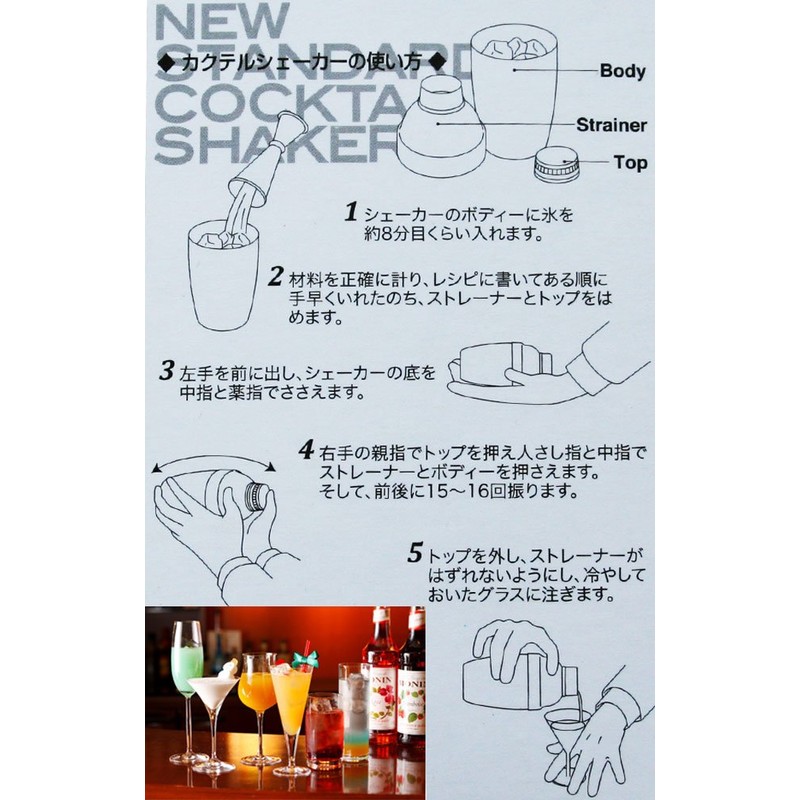 NEW
STANDARD
◆ カクテルシェーカーの使い方 ◆
COCKTA
SHAKER
Body
Strainer
Top
1 シェーカーのボディーに氷を
約8分目くらい入れます。
2 材料を正確に計り、レシピに書いてある順に
手早くいれたのち、ストレーナーとトップをは
めます。
3 左手を前に出し、シェーカーの底を
中指と薬指でささえます。
4 右手の親指でトップを押え人さし指と中指で
ストレーナーとボディーを押さえます。
そして、前後に15〜16回振ります。
5 トップを外し、ストレーナーが
はずれないようにし、冷やして
おいたグラスに注ぎます。
MONIN